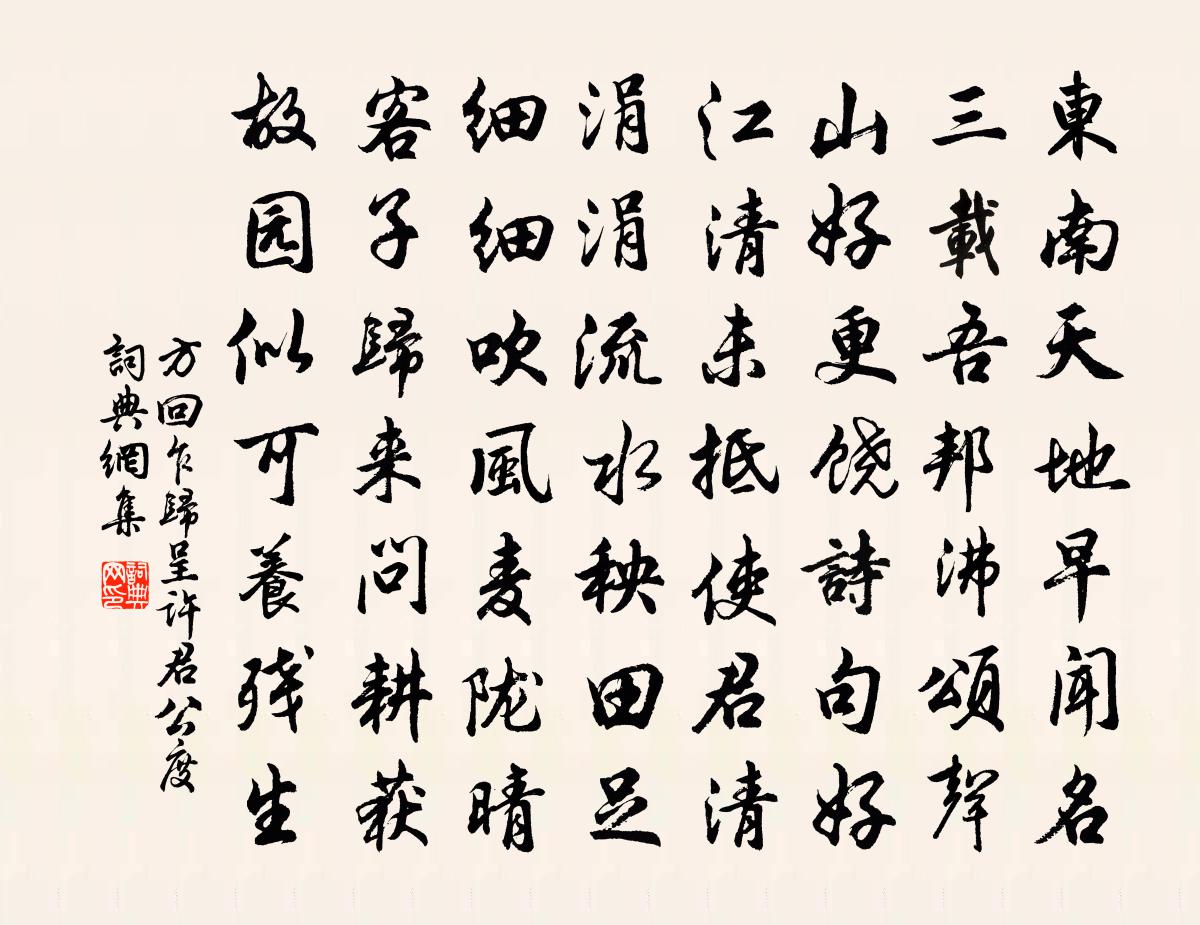 東南天地早聞名
三載吾邦沸頌聲
山好更饶詩句好
江清未抵使君清
涓涓流水秧田足
细细吹風麦陇晴
客子歸来問耕获
故园似可養残生
方回乍歸呈許君公度
詞典網集
詞典网印